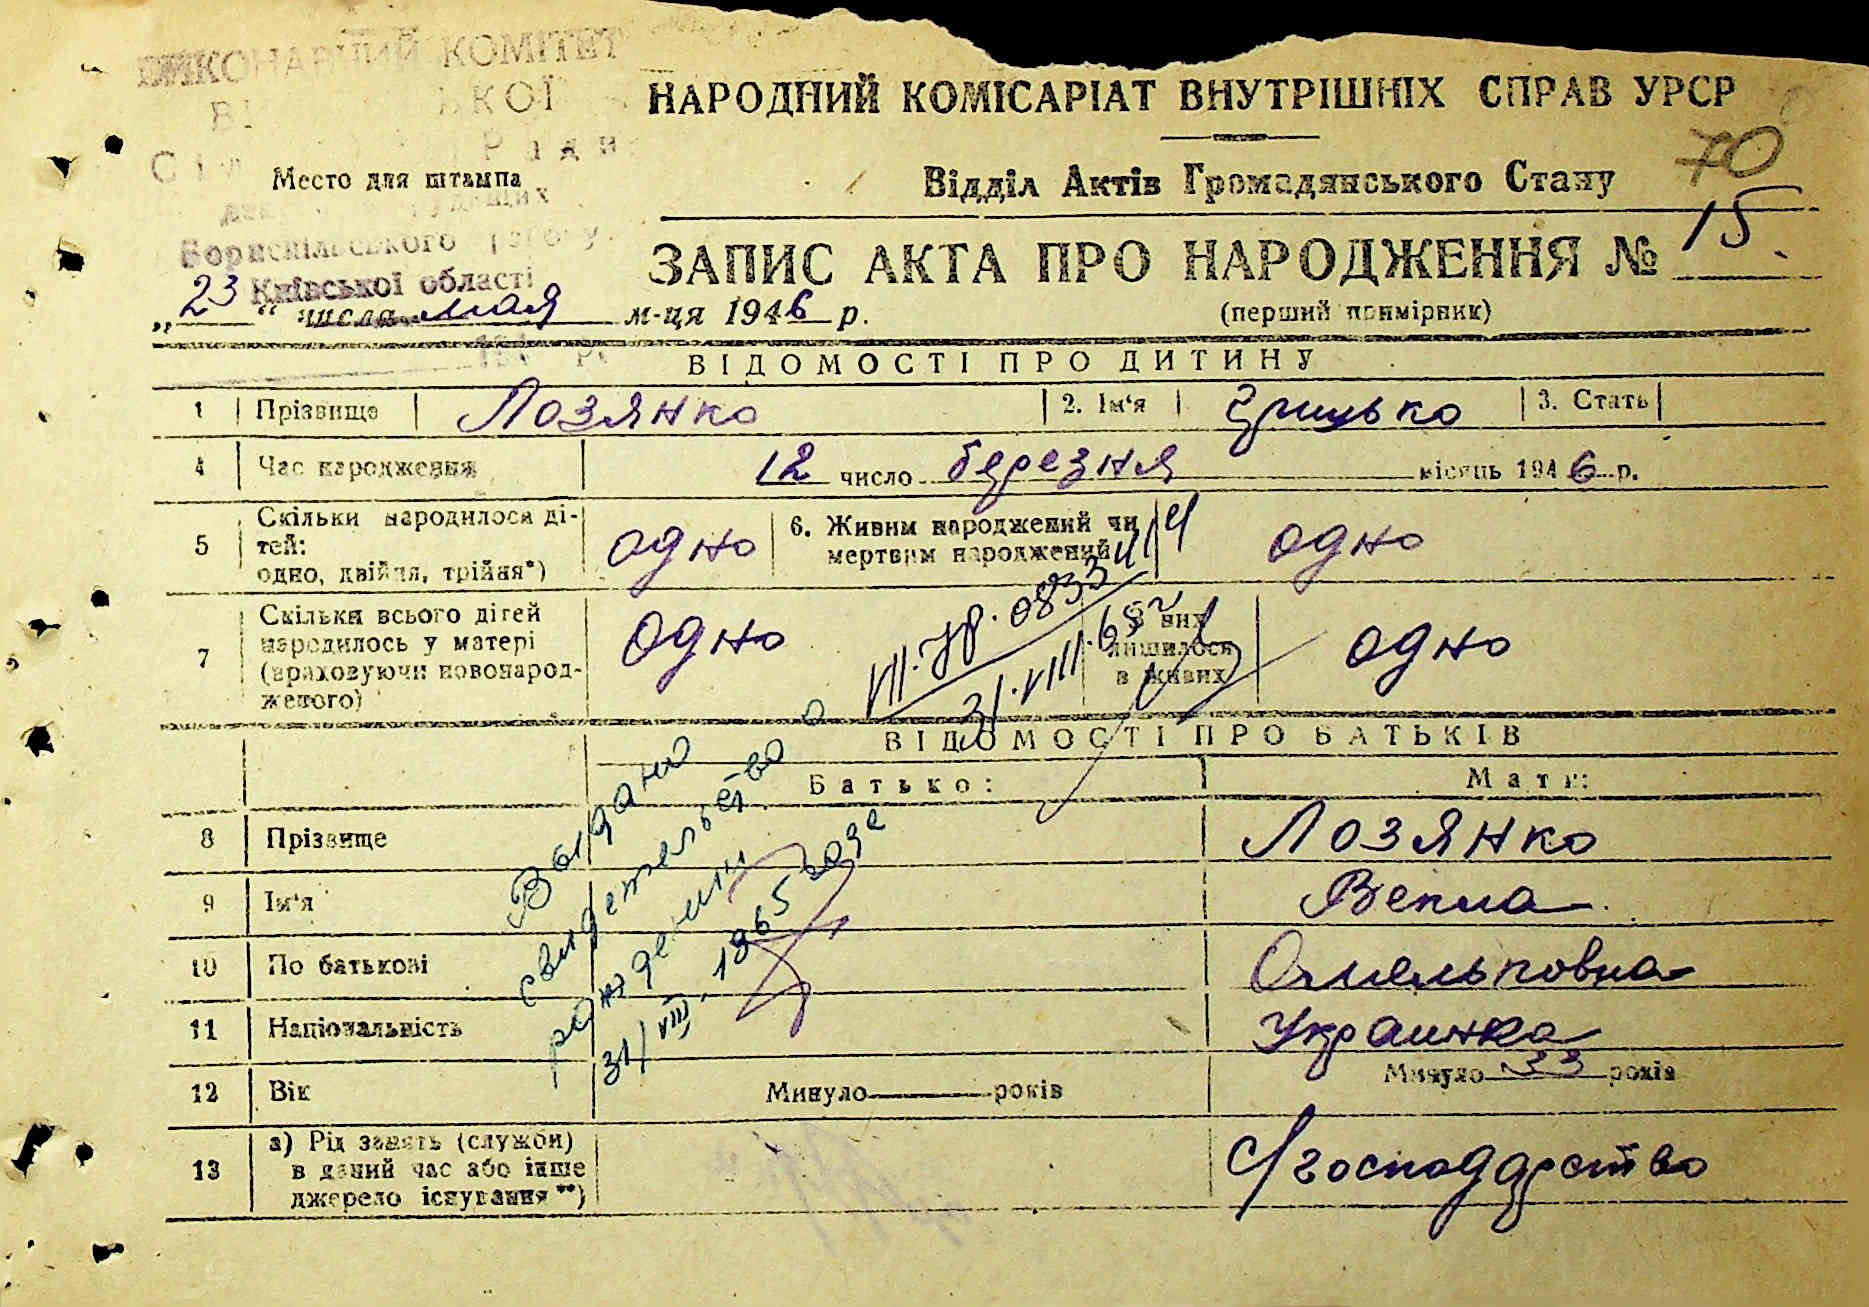 ВИКОНАВЧИЙ КОМІТЕТ
Місто для штампа
Бориспільського
Київської області
НАРОДНИЙ КОМІСАРІАТ ВНУТРІШНІХ СПРАВ УРСР
70
Відділ Актів Громадянського Стану
ЗАПИС АКТА ПРО НАРОДЖЕННЯ № 15
„23“ числа мая м-ця 1946 р.
(перший примірник)
ВІДОМОСТІ ПРО ДИТИНУ
1 Прізвище Лозянко 2. Ім'я Грицько 3. Стать
4 Час народження 12 число березня місяць 1946 р.
5 Скільки народилося ді-
тей:
одно, двійня, трійня*) одно
6. Живим народжений чи
мертвим народжений одно
7 Скільки всього дітей
народилось у матері
(враховуючи новонарод-
женого) одно
З них
лишилося
в живих одно
31.VIII.65 г
ВІДОМОСТІ ПРО БАТЬКІВ
Батько: Мати:
8 Прізвище Лозянко
9 Ім'я Векла
10 По батькові Омельковна
11 Національність Украинка
12 Вік Минуло років Минуло 33 років
13 а) Рід занять (служби)
в даний час або інше
джерело існування **) с/господарство
Выдано
свидетельство о
рождении
31/VIII. 1965 годе